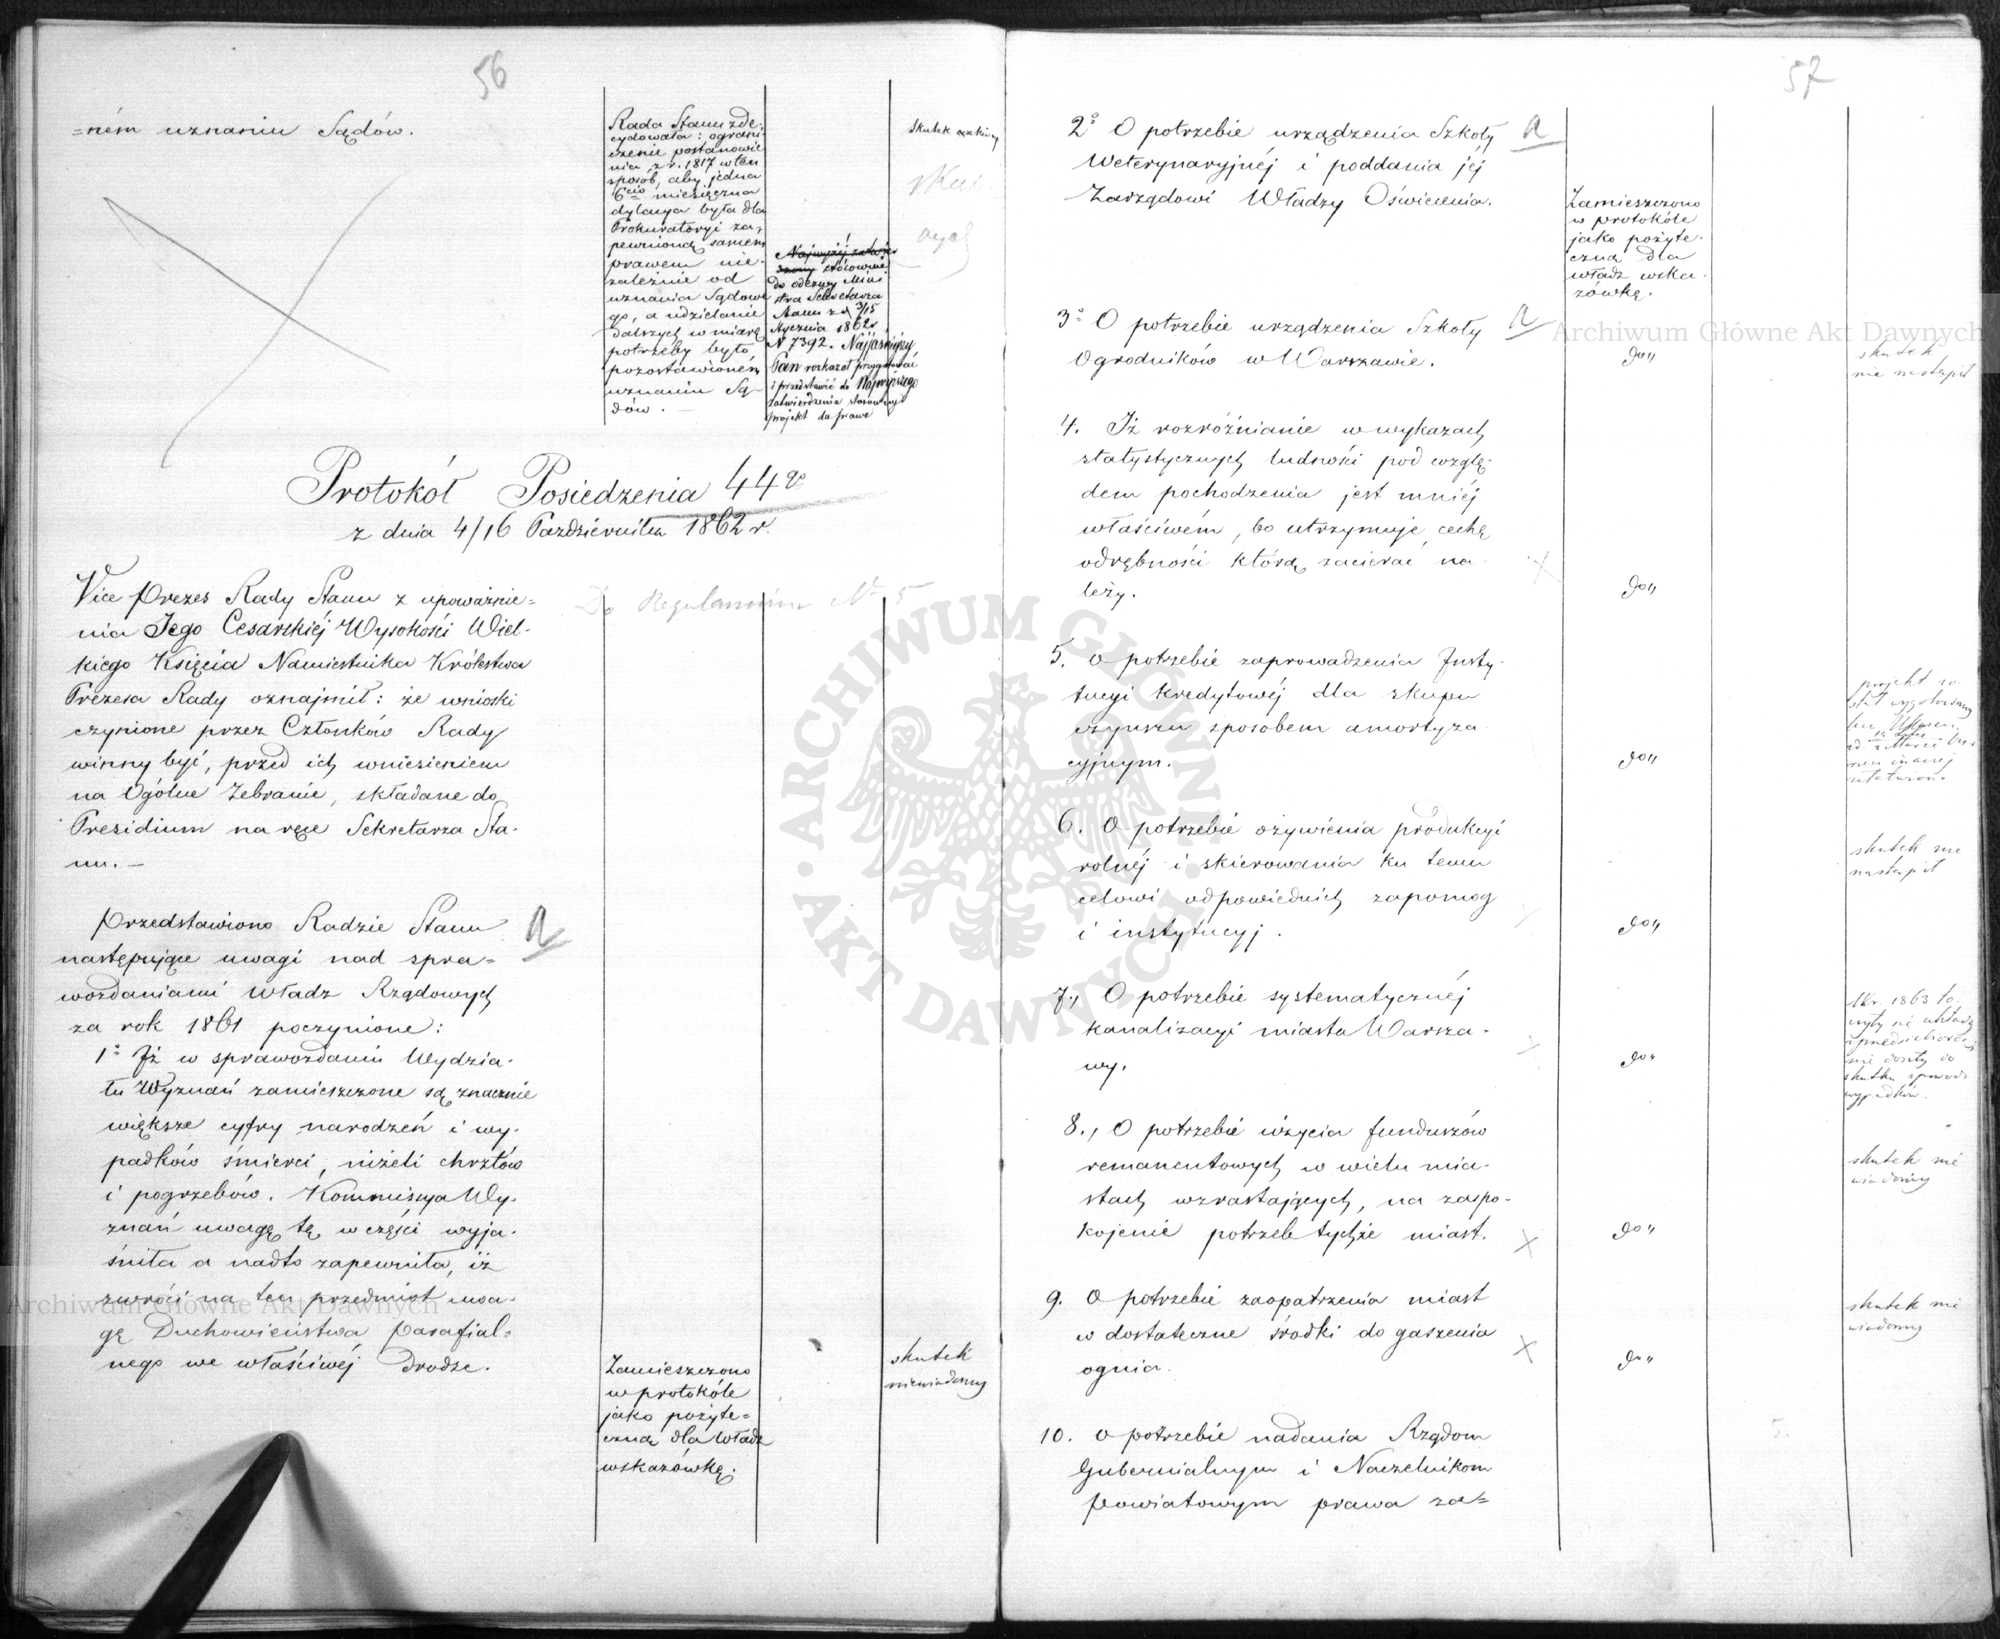 56
=ném uznaniu Sądów.
Rada Stanu zde=
cydowała: ograni
czenie postanowie
nia z r. 1817 w ten
sposób, aby jedna
6cio miesięczna
dylacya była dla
Prokuratoryi za,
pewnioną samem
prawem nie=
zależnie od
uznania Sądowe
go, a udzielanie
dalszych w miarę
potrzeby było
pozostawionem
uznaniu Są=
dów. —
do odezwy Mini
stra Sekretarza
Stanu z d 3/15
Stycznia 1862 r
N 7392. Najjaśniejszy
Pan rozkazał przygotować
i przedstawić do Najwyższego
zatwierdzenia stosowny
projekt do prawa
skutek oczekiwany
Protokół Posiedzenia 44go
z dnia 4/16 Października 1862 r.
Do Regulaminu No 5
Vice Prezes Rady Stanu z upoważnie=
nia Jego Cesarskiéj Wysokości Wiel=
kiego Księcia Namiestnika Królestwa
Prezesa Rady oznajmił: że wnioski
czynione przez Członków Rady
winny być, przed ich wniesieniem
na Ogólne Zebranie, składane do
Prezidium na ręce Sekretarza Sta=
nu. —
Przedstawiono Radzie Stanu
następujące uwagi nad spra=
wozdaniami Władz Rządowych
za rok 1861 poczynione:
1o Iż w sprawozdaniu Wydzia=
łu Wyznań zamieszczone są znacznie
większe cyfry narodzeń i wy=
padków śmierci, niżeli chrztów
i pogrzebów. Kommissya Wy=
znań uwagę tę w części wyja=
śniła a nadto zapewniła, iż
zwróci na ten przedmiot uwa=
gę Duchowieństwa parafial=
nego we właściwéj drodze.
Zamieszczono
w protokóle
jako pożyte=
czną dla Władz
wskazówkę.
skutek
niewiadomy
57
2o O potrzebie urządzenia Szkoły
Weterynaryjnéj i poddania jéj
Zarządowi Władzy Oświecenia.
Zamieszczono
w protokóle
jako pożyte=
czną dla
władz wska=
zówkę.
3o O potrzebie urządzenia Szkoły
Ogrodników w Warszawie.
do„
skutek
nie nastąpił
4. Iż rozróżnianie w wykazach
statystycznych ludności pod wzglę=
dem pochodzenia jest mniéj
właściwém, bo utrzymuje cechę
odrębności którą zacierać na=
leży.
do„
5. O potrzebie zaprowadzenia Insty=
tucyi kredytowéj dla skupu
czynszu sposobem amortyza=
cyjnym.
do„
6. O potrzebie ożywienia produkcyi
rolnéj i skierowania ku temu
celowi odpowiednich zapomog
i instytucyj.
do„
skutek nie
nastąpił
7., O potrzebie systematycznéj
kanalizacyi miasta Warsza=
wy.
do„
W r. 1863 to
czyły się układy
z przedsiębiorcą
nie doszły do
skutku z powodu
wypadków.
8., O potrzebie użycia funduszów
remanentowych w wielu mia=
stach wzrastających, na zaspo=
kojenie potrzeb tychże miast.
do„
skutek nie
wiadomy
9. O potrzebie zaopatrzenia miast
w dostateczne środki do gaszenia
ognia.
do„
skutek nie
wiadomy
10. O potrzebie nadania Rządom
Gubernialnym i Naczelnikom
Powiatowym prawa za=
Archiwum Główne Akt Dawnych
Archiwum Główne Akt Dawnych
ARCHIWUM GŁÓWNE AKT DAWNYCH